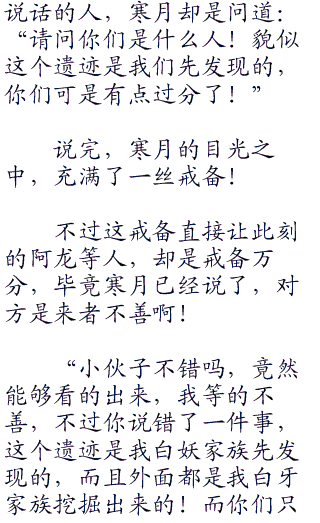 说话的人，寒月却是问道：
“请问你们是什么人！貌似
这个遗迹是我们先发现的，
你们可是有点过分了！”
说完，寒月的目光之
中，充满了一丝戒备！
不过这戒备直接让此刻
的阿龙等人，却是戒备万
分，毕竟寒月已经说了，对
方是来者不善啊！
“小伙子不错吗，竟然
能够看的出来，我等的不
善，不过你说错了一件事，
这个遗迹是我白妖家族先发
现的，而且外面都是我白牙
家族挖掘出来的！而你们只